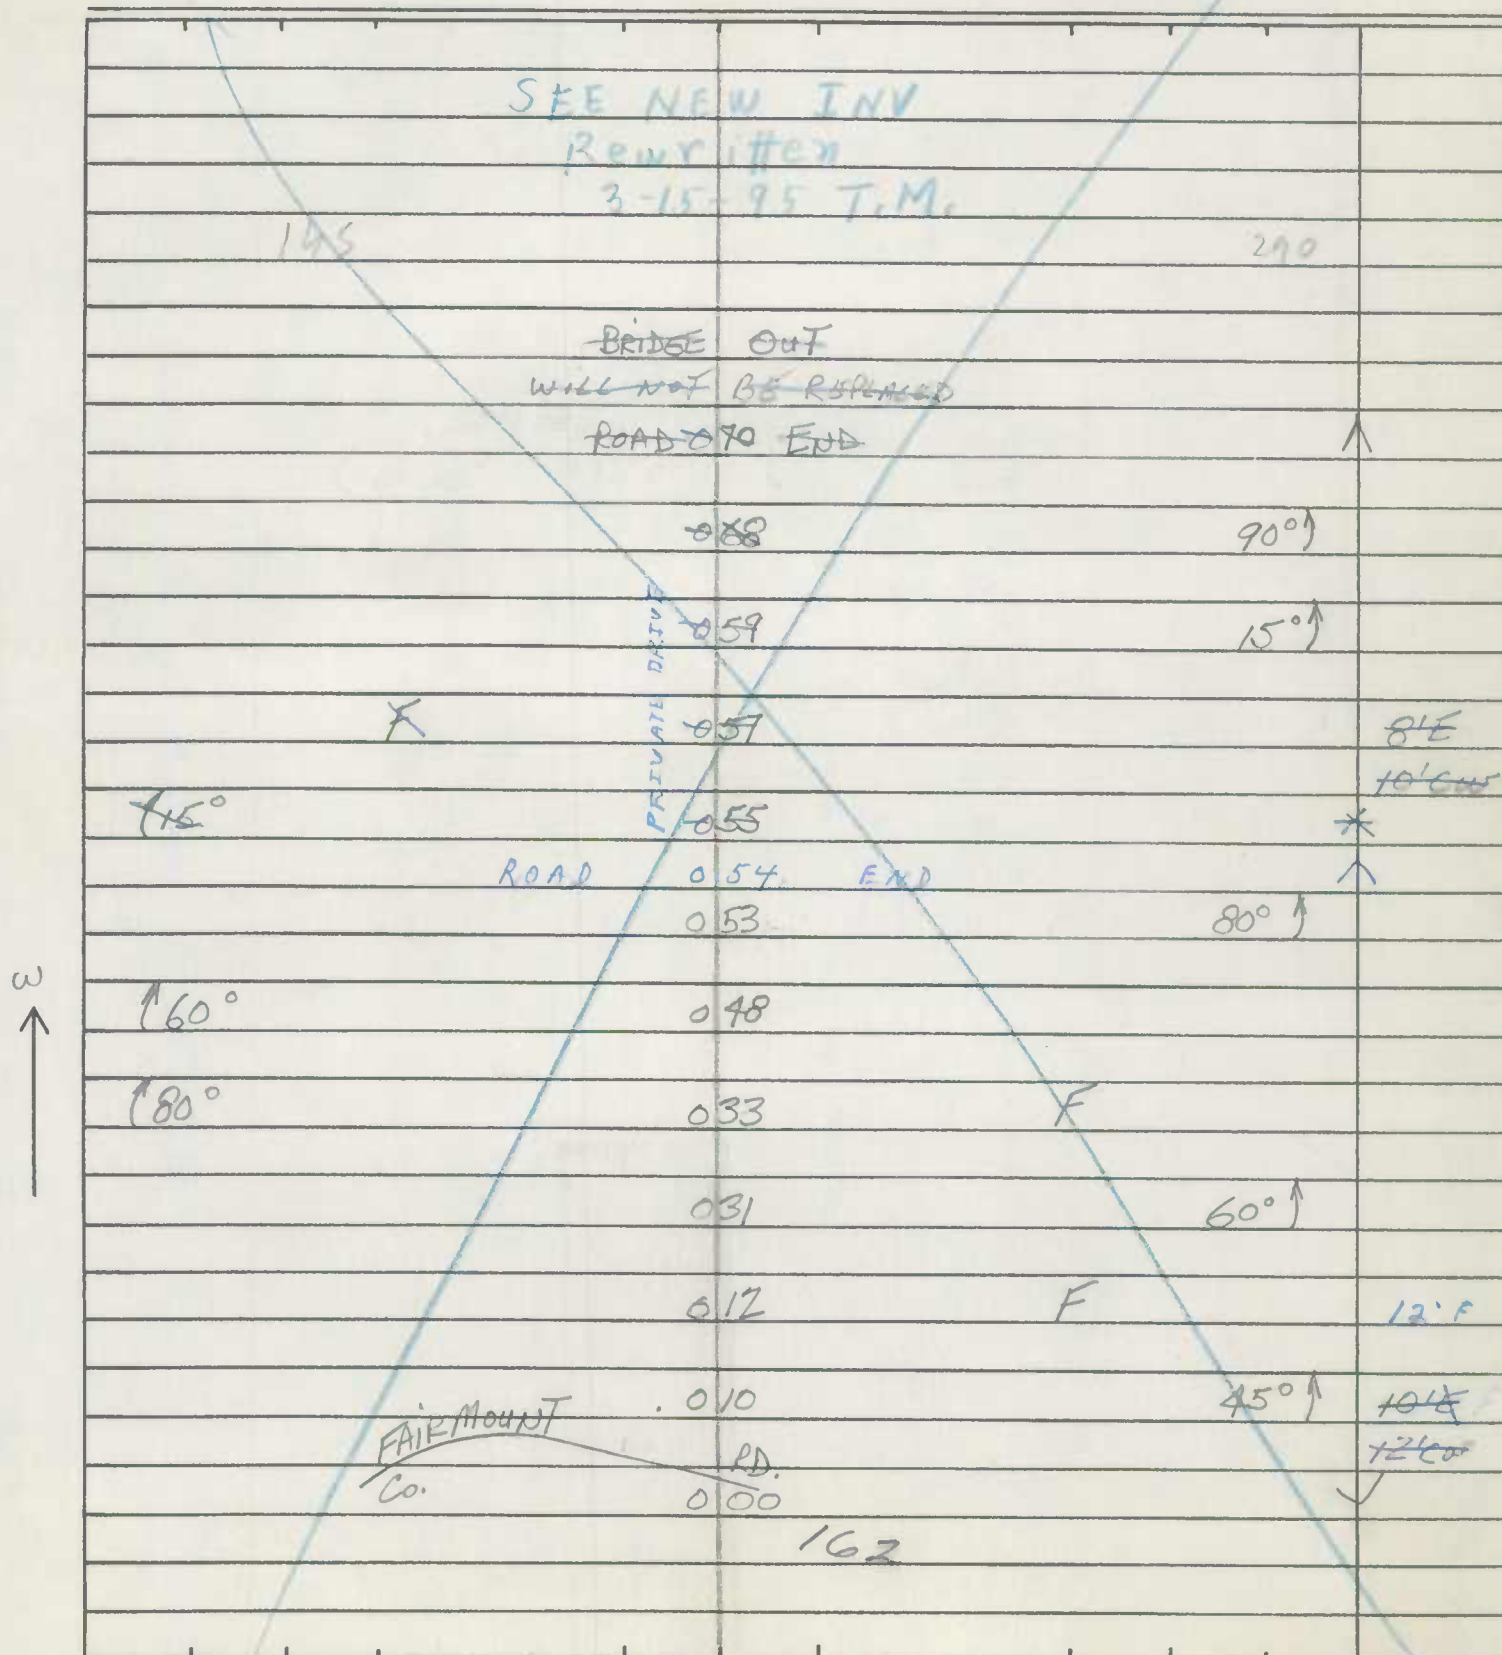 SEE NEW INV
Rewritten
3-15-95 T.M.
145 290
BRIDGE OUT
WILL NOT BE REPLACED
ROAD 070 END
068 90°
PRIVATE DRIVE
059 15°
F 057 8'E
15° 055
ROAD 0.54 END
053 80°
W
60° 048
80° 033 F
031 60°
012 F 12'
010 45° 10'E
FAIRMOUNT RD.
Co. 000
162